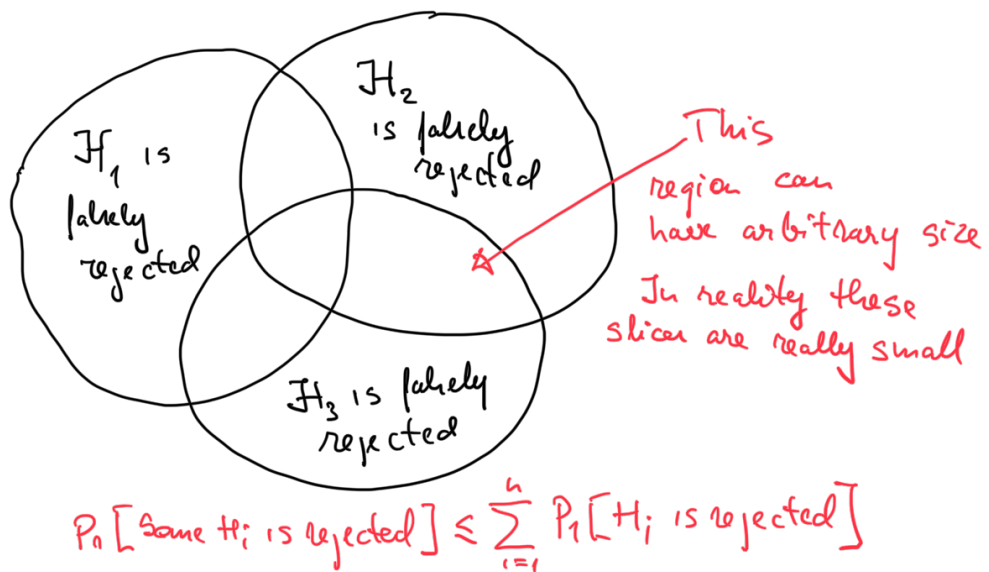 H₁ is
falsely
rejected
H₂
is falsely
rejected
H₃ is falsely
rejected
This
region can
have arbitrary size
In reality these
slices are really small
Pr[Some Hᵢ is rejected] ≤ ∑ᵢ₌₁ⁿ Pr[Hᵢ is rejected]